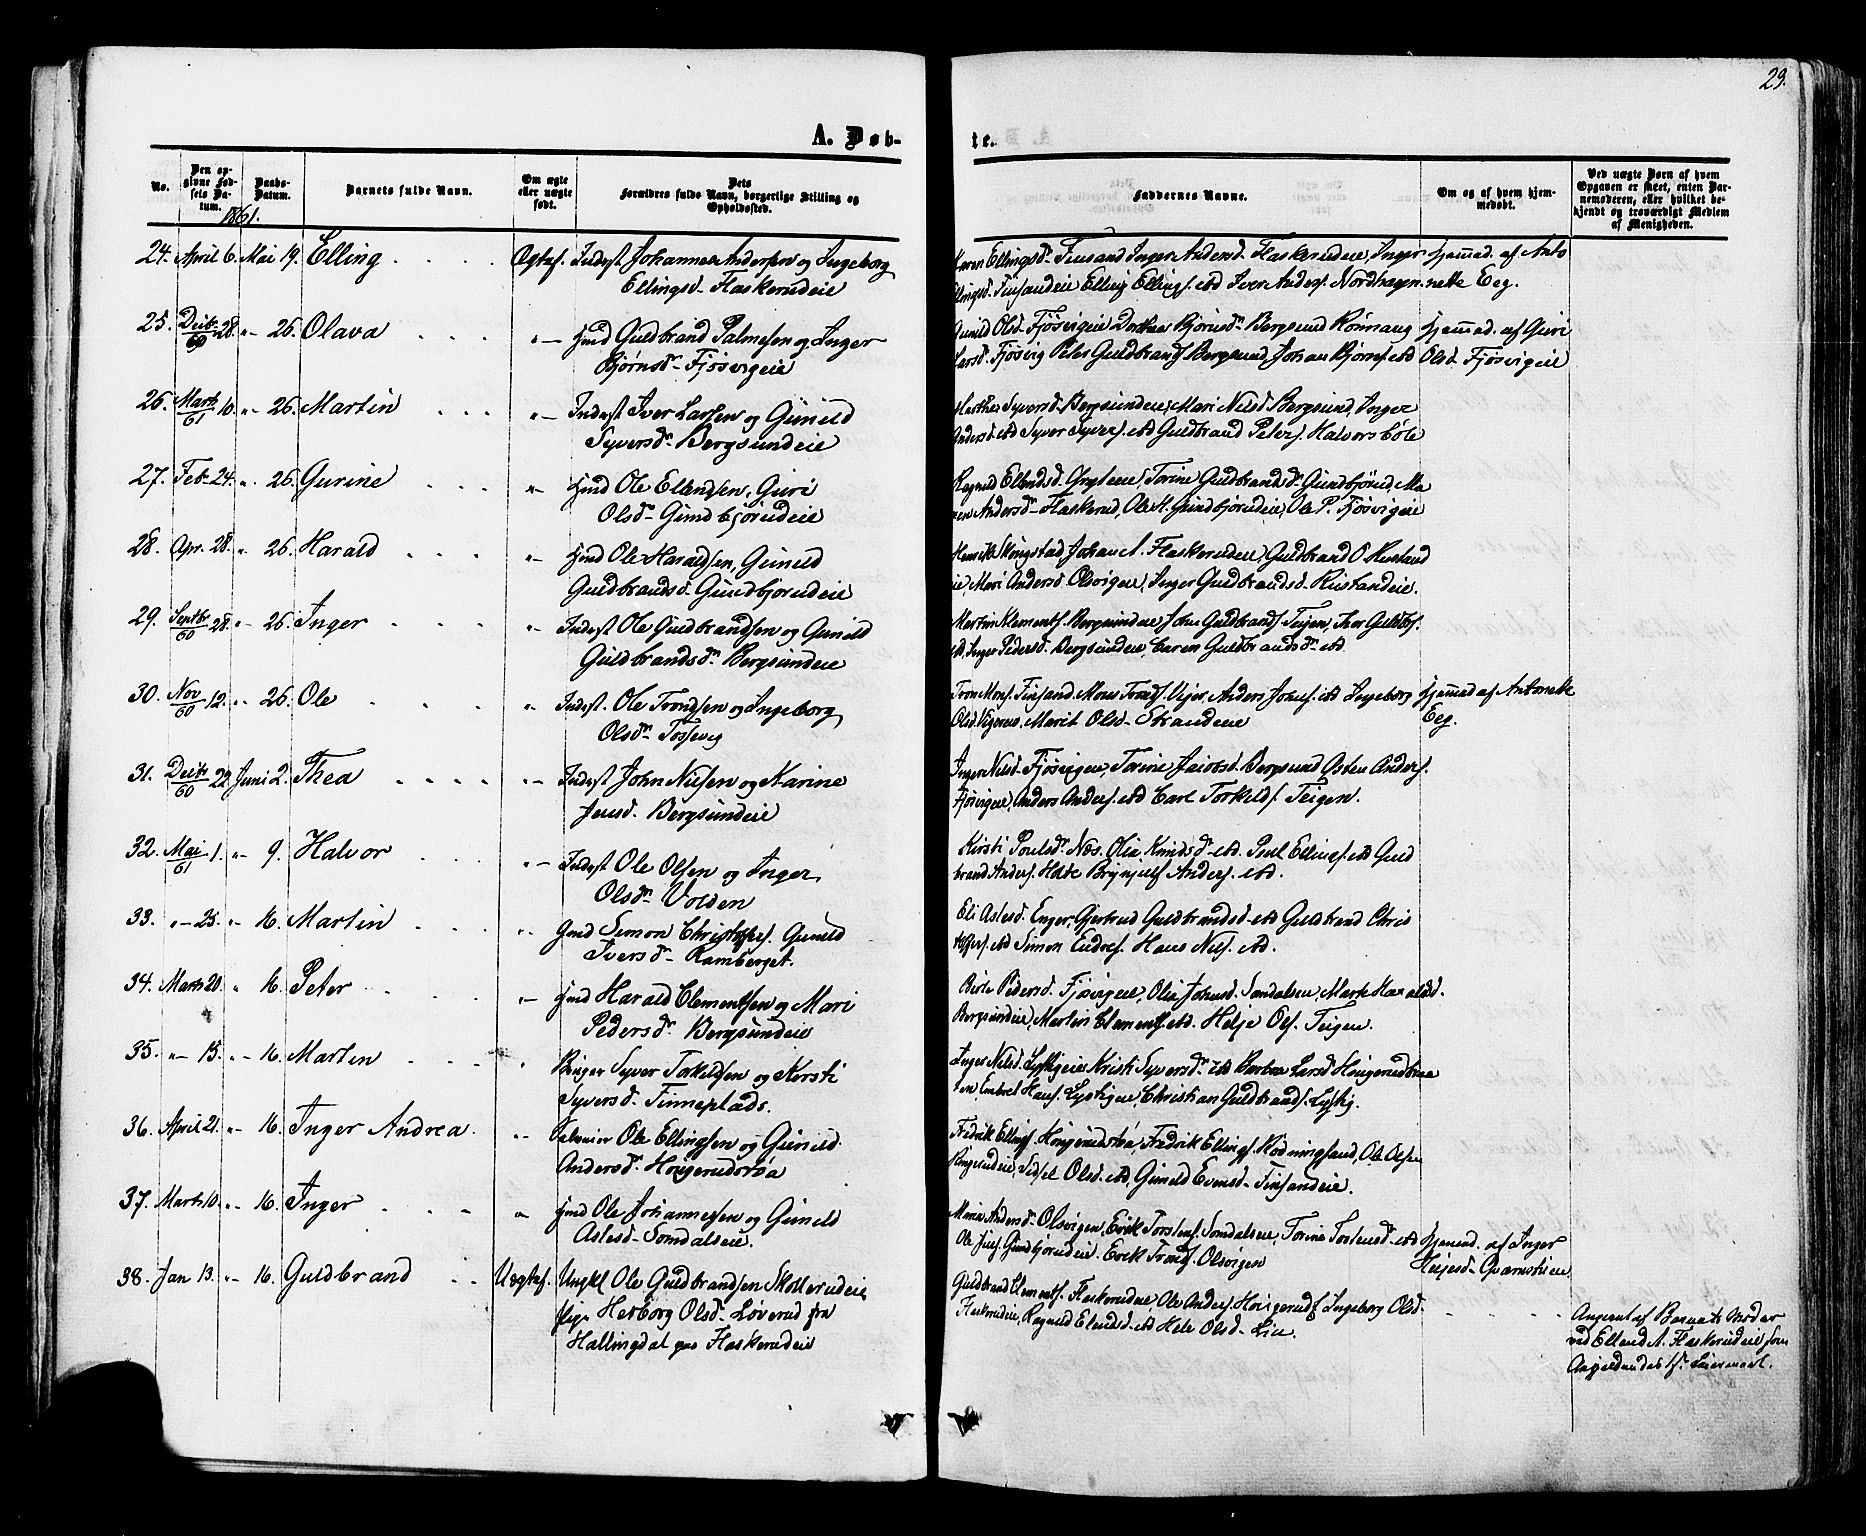 23.
A. Døb-
te.
No.
Den op-
givne Fød-
sels Da-
tum.
Daabs-
Datum.
Barnets fulde Navn.
Om ægte
eller uægte
født.
Dets
Forældres fulde Navn, borgerlige Stilling og
Opholdssted.
Faddernes Navne.
Om og af hvem hjem-
medøbt.
Ved uægte Børn af hvem
Opgaven er skeet, enten Bar-
nemoderen, eller hvilket be-
kjendt og troværdigt Medlem
af Menigheden.
1861.
24. April 6. Mai 19. Elling Ægtef. Inderst Johannes Andersen og Ingeborg
Ellingsd. Flaskerudeie
Karen Ellingsd. Finsand Inger Andersd. Flaskerudeie, Inger hjemmed. af Anto
Ellingsd. Finsandeie Elling Ellings. ibd Iver Anders. Nordhagen nette Eeg.
25. Decbr 28. " 26. Olava " Hmd Guldbrand Palmesen og Inger
60
Bjørnsd. Fjøsvigeie
Gunild Olsd. Fjøsvigeie Dorthea Bjørnsd. Bergsund Rønnaug hjemmed. af Guri
Larsd. Fjøsvig Peter Guldbrands. Bergsund, Johan Bjørns. ibd Olsd. Fjøsvigeie
26. Marts 10. " 26. Martin " Inderst Iver Larsen og Gunild
61
Syversd. Bergsundeie
Marthe Syversd. Bergsundeie, Mari Nilsd Bergsund, Inger
Andersd. ibd Syver Syvers. ibd Guldbrand Peters. Halvorsbøle
27. Feb. 24. " 26. Gurine " Hmd Ole Ellendsen, Guri
Olsd. Gundbjørudeie
Ragnild Ellendsd. Gryteeie, Torine Guldbrandsd. Gundbjørud, Ma
ren Andersd. Flaskerud, Ole H. Gundbjørudeie, Ole P. Fjøsvigeie
28. Apr. 28. " 26. Harald " Hmd Ole Haraldsen, Gunild
Guldbrandsd. Gundbjørudeie
Henrik Ringstad Johan A. Flaskerudeie, Guldbrand O Rustand
eie, Mari Andersd. Olsvigeie, Inger Guldbrandsd. Rustandeie.
29. Septbr 28. " 26. Inger " Inderst Ole Guldbrandsen og Gunild
60
Guldbrandsd. Bergsundeie
Martin Klements. Bergsundeie, John Guldbrands. Teigen, Thor Guldbs.
ibd, Inger Pedersd. Bergsundeie, Karen Guldbrandsd. ibd
30. Nov 12. " 26. Ole " Inderst. Ole Trondsen og Ingeborg
60
Olsd. Tossevig
Tron Mons. Finsand. Mons Tronds. Anders Johns. ibd Ingeborg hjemmed af Antonette
Olsd. Marit Olsd. Strandeie Eeg.
31. Decbr 22. Juni 2. Thea " Inderst John Nilsen og Karine
60
Jensd. Bergsundeie
Inger Nilsd. Fjøsvigeie, Torine Jacobsd. Bergsund Østen Anders.
Fjøsvigeie, Anders Anders. ibd Carl Torkilds. Teigen.
32. Mai 1. " 9. Halvor " Inderst Ole Olsen og Inger
61
Olsd. Volden
Kirsti Poulsd. Næs. Olia Knudsd. ibd. Poul Ellings. ibd Guld
brand Anders. Brynjulf Anders. ibd.
33. " 25. " 16. Martin " Gmd Simon Christophers. Gunild
Iversd. Ramberget.
Eli Aslesd. Enger, Gjertrud Guldbrandsd. ibd Guldbrand Chris
tophers. ibd Simon Endres. Hans Nils. ibd.
34. Marts 20. " 16. Peter " Hmd Harald Clementsen og Mari
Pedersd. Bergsundeie
Birte Pedersd. Fjøsvigeie, Olia Johnsd. Sandalseie, Marte Haraldsd.
Bergsundeie, Martin Clements. ibd. Helje Ols. Teigen.
35. " 15. " 16. Martin " Bruger Syver Torkildsen og Kirsti
Syversd. Finneplads.
Inger Nilsd. Kristi Syversd. ibd Barbra Larsd Hougerudbraa
ten Embret Hans. Christian Guldbrands.
36. April 21. " 16. Inger Andrea " Selveier Ole Ellingsen og Gunild
Andersd. Hougerudsrøa
Fredrik Ellings. Hougerudsrøa, Fredrik Ellings. Ole Olsen
Ringerudeie, Sidsel Olsd. ibd, Gunild Evensd. Finsandeie.
37. Marts 10. " 16. Inger " Hmd Ole Johannessen og Gunild
Aslesd. Somdalseie.
Maria Andersd. Olsvigen, Erik Torstens. Somdalseie, Torine Torstensd. ibd hjemmed. af Inger
Ole Juls. Gundbjørudeie. Erik Tronds. Olsvigen Heljesd. Qvernstieie
38. Jan 13. " 16. Guldbrand Uægtef. Ungkl Ole Guldbrandsen Skollerudeie
Pige Herborg Olsd. Løverud fra
Hallingdal paa Flaskerudeie
Guldbrand Clements. Flaskerudeie, Ole Anders. Hougerud, Ingeborg Olsd.
Flaskerudeie, Ragnild Elendsd. ibd Hele Olsd. Lie.
Angivet af Barnets Moder
ved Ellend A. Flaskerudeie som